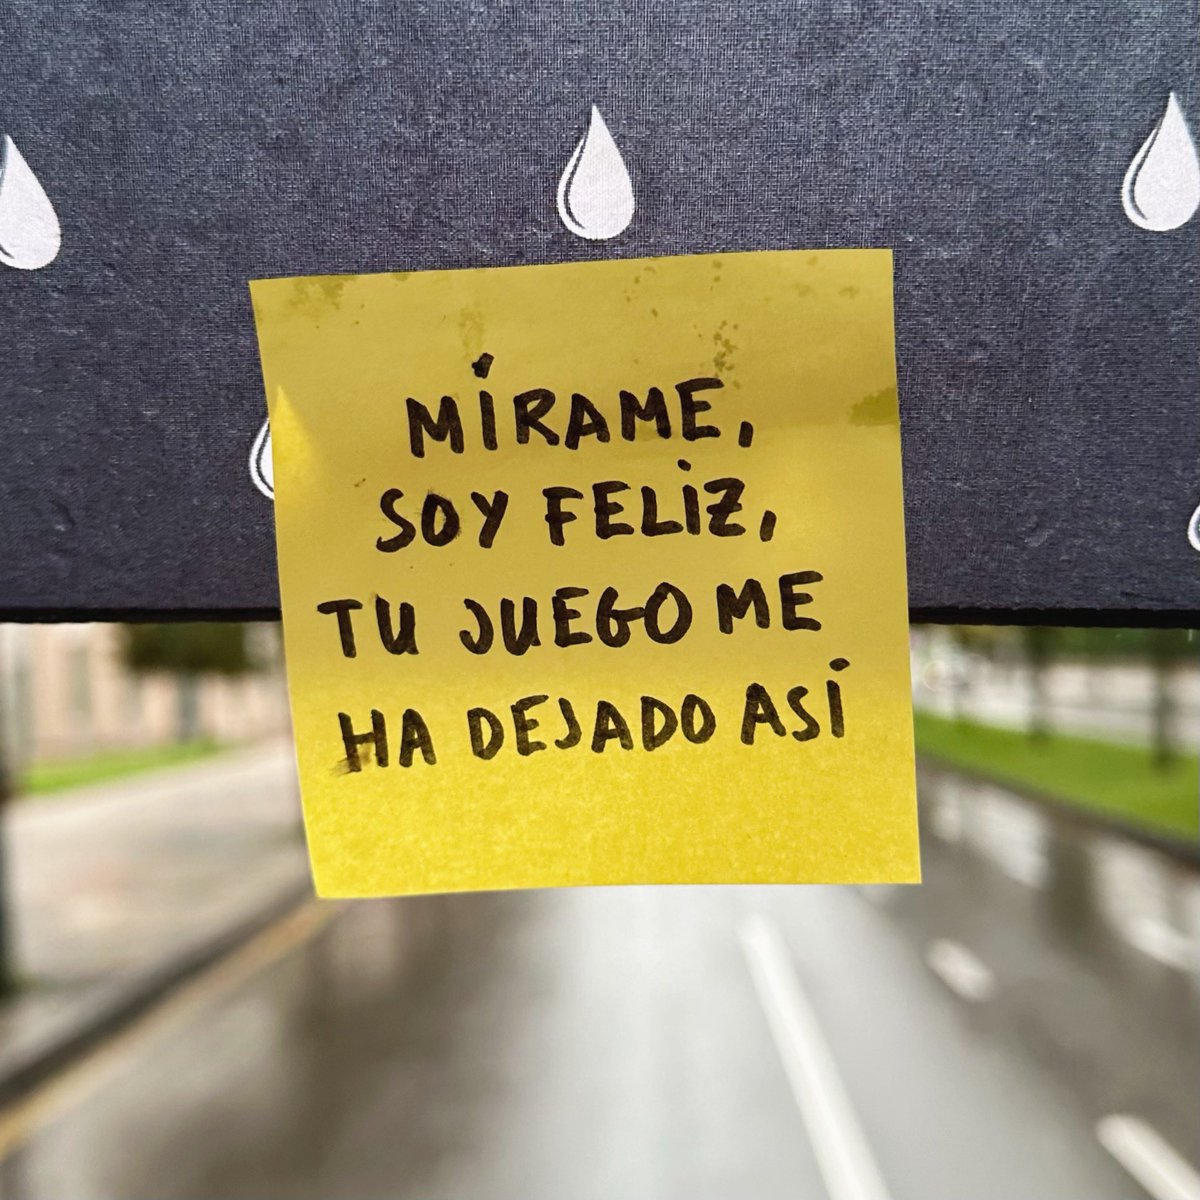 MÍRAME,
SOY FELIZ,
TU JUEGO ME
HA DEJADO ASÍ